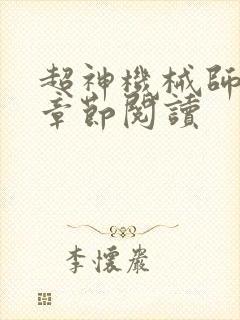 超神機械師
章節閱讀
李懷巖